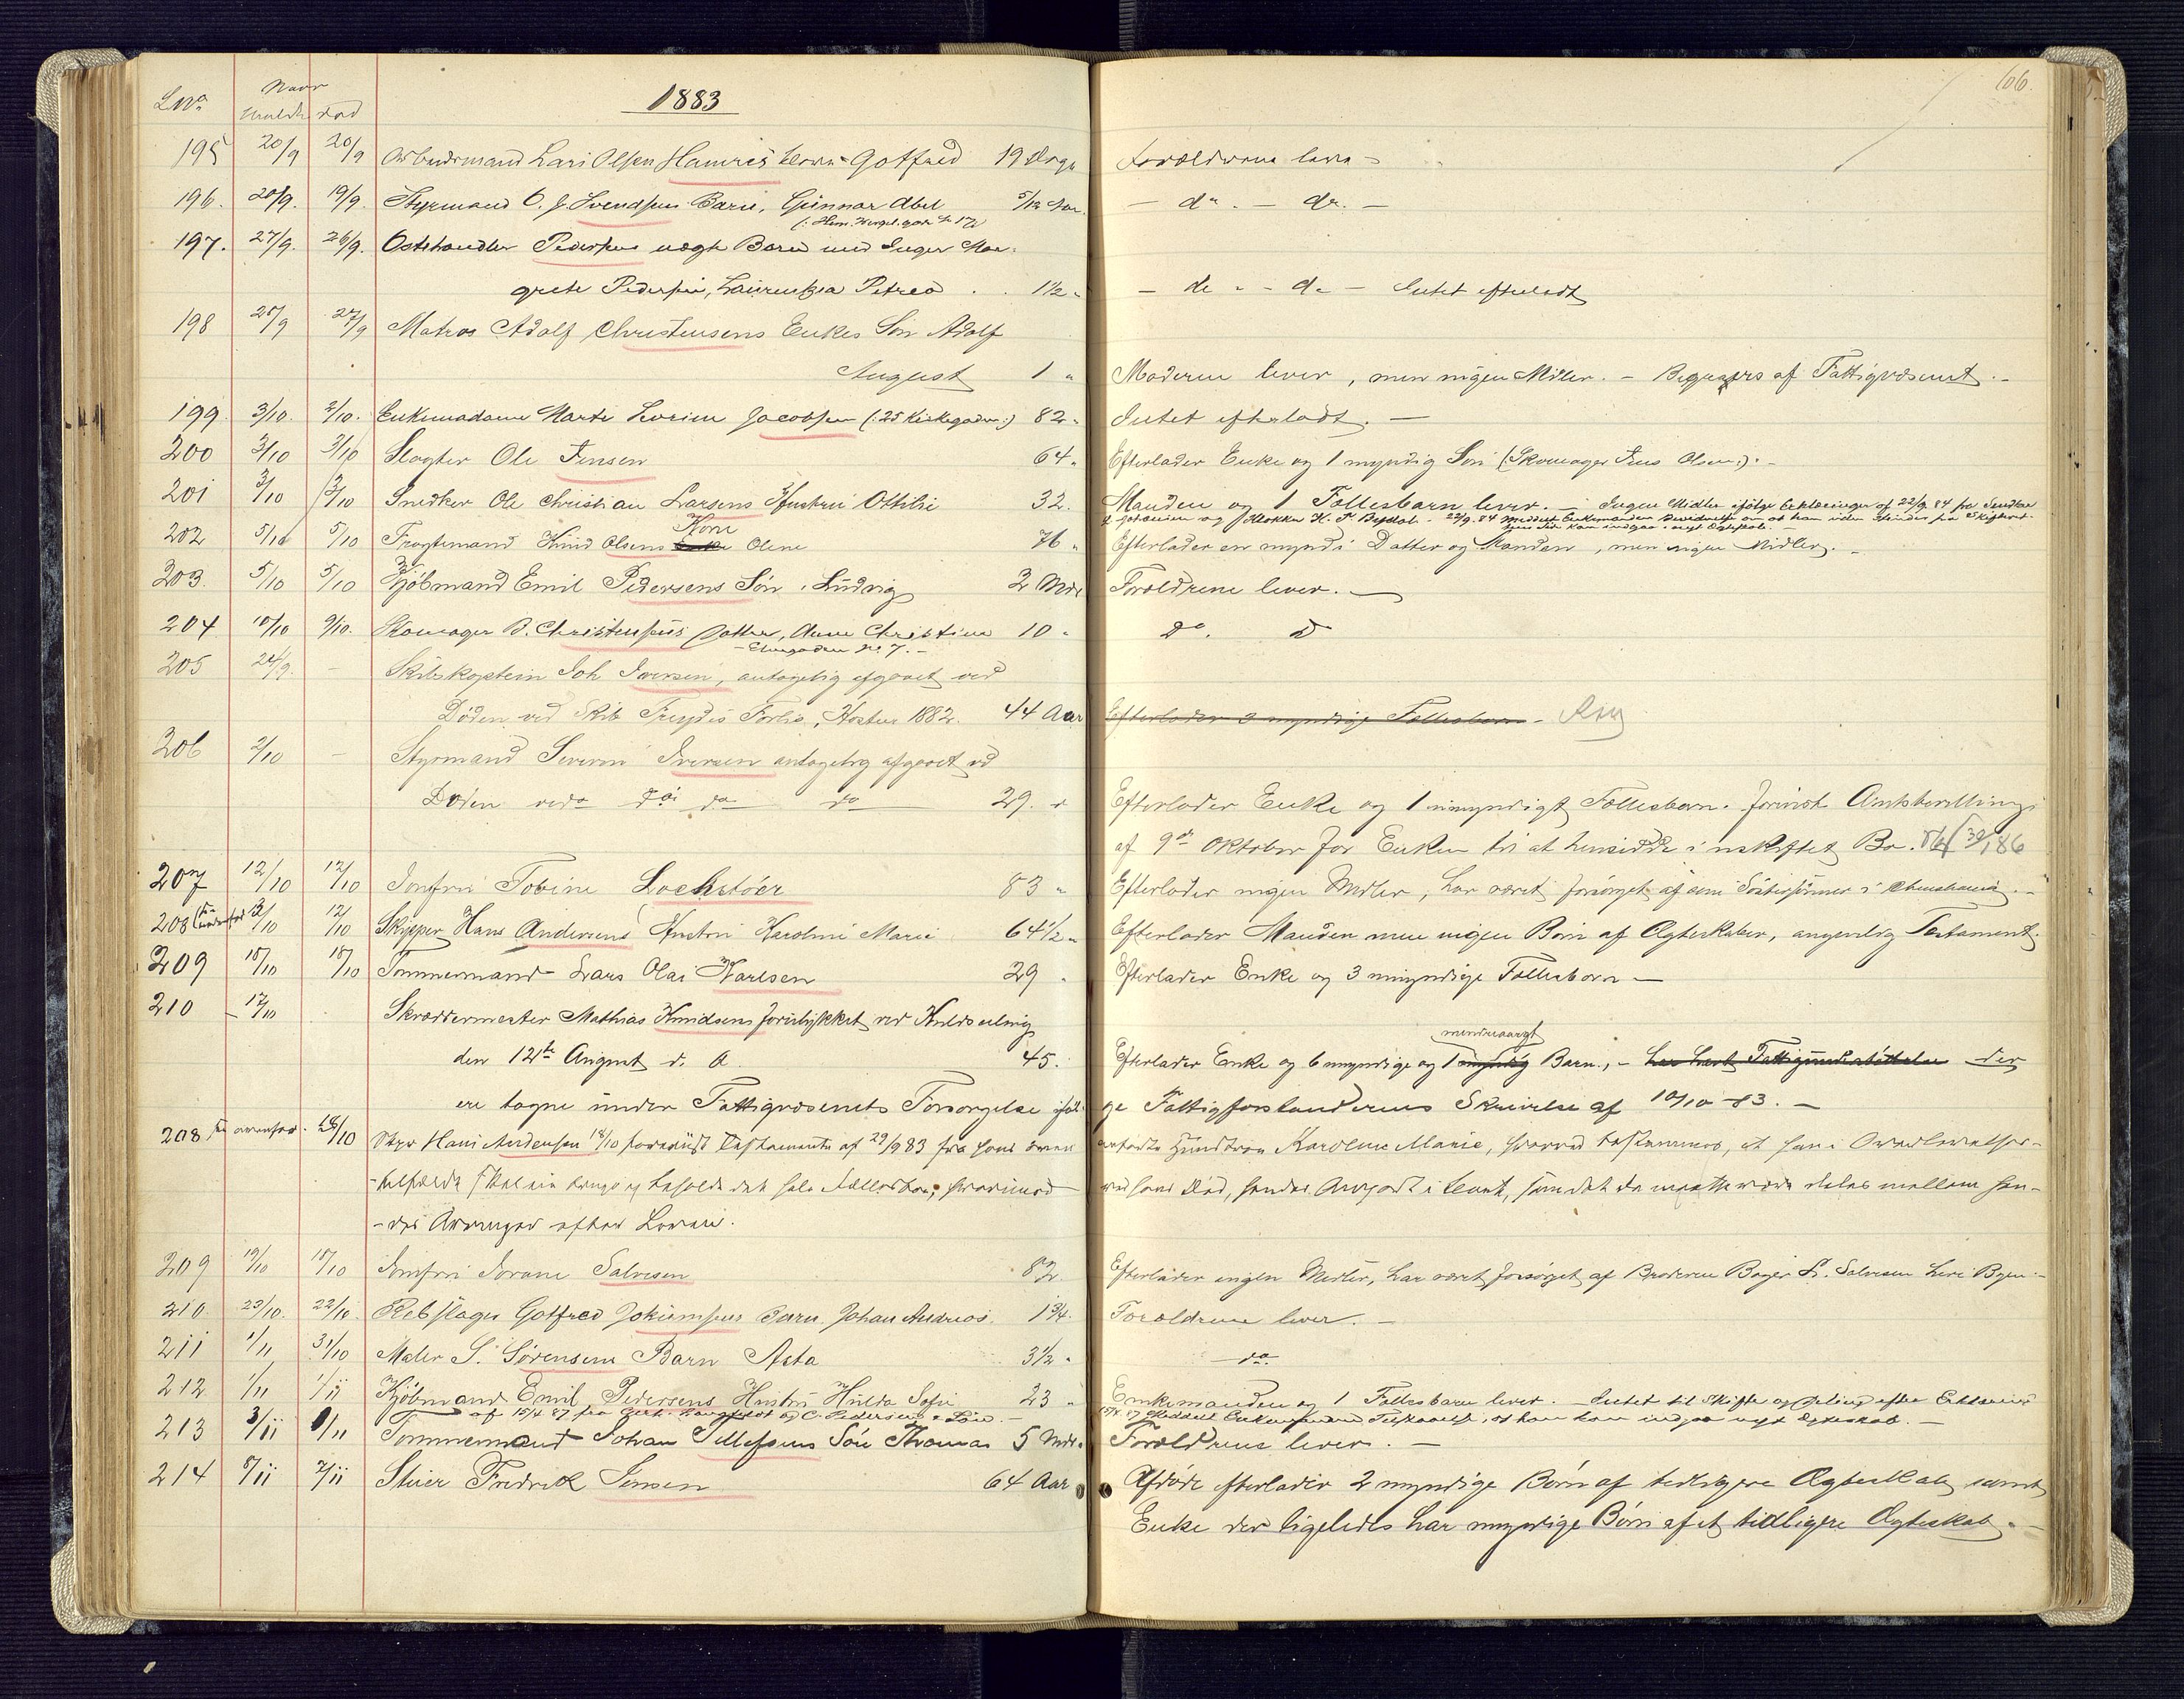 66.
1883
LNo
Naar
Meldt död
195 20/9 20/9 Arbeidsmand Lars Olsen Hamres Barn Gotfred 19 Dage Forældrene lever
196. 20/9. 19/9. Styrmand O. J. Svendsens Barn, Gunnar Abel 5/12 Aar. - do. - do. -
197. 27/9. 26/9. Ostehandler Pedersens uægte Barn med Inger Mar-
grete Pedersen, Laurentzea Petrea . . 1½ " - do - - do - Intet efterladt
198 28/9 27/9 Matros Adolf Christensens Enkes Søn Adolf
August 1 " Moderen lever, men ingen Midler. - Begraves af Fattigvæsenet. -
199. 3/10. 2/10. Enkemadame Marte Lovise Jacobsen (: 25 Kirkegaden :) 82 " Intet efterladt. -
200 3/10 3/10 Slagter Ole Jensen 64 " Efterlader Enke og 1 myndig Søn (Skomager Jens Olsen). -
201 3/10 3/10 Snedker Ole Christian Larsens Hustru Ottilie 32. Manden og 1 Fællesbarn lever. - Ingen Midler ifølge Erklæringer af 22/9 84 fra Snedker
202 5/10 5/10 Fragtemand Knud Olsens Kone Olene 76 " Efterlader en myndi Datter og Manden, men ingen Midler. -
203. 5/10 5/10 Kjöbmand Emil Pedersens Sön Ludvig 2 Mdr Forældrene lever. -
204 10/10 9/10. Skomager B. Christensens Datter, Anne Christine 10 " do. do
- Elvegaden No 7. -
205 24/9. - Skibskaptein Joh Iversen, antagelig afgaaet ved
Döden ved Skib Freydis Forlis, Høsten 1882. 44 Aar Efterlader 2 myndige Fællesbørn -
206 2/10 - Styrmand Severin Iversen antagelig afgaaet ved
Døden ved do do do 29. " Efterlader Enke og 1 umyndigt Fællesbarn. Forevist Amtsbevilling
af 9de Oktober for Enken til at hensidde i uskiftet Bo.
207 12/10 12/10 Jomfru Tobine Lochstöer 83 " Efterlader ingen Midler, har været forsørget af sine Søstersønner i
208 12/10 12/10 Skipper Hans Andersens Hustru Karoline Marie 64½ " Efterlader Manden men ingen Børn af Ægteskabet, angivelig Testament
209 18/10 18/10 Tømmermand Lars Olai Karlsen 29 " Efterlader Enke og 3 umyndige Fællesbørn -
210 - 17/10 Skræddermester Mathias Knudsens forulykket ved Kuldseiling
mindreaarigt
den 12te August d. A. 45. Efterlader Enke og 6 umyndige og 1 myndig Barn, - har havt Fattigunderstøttelse der
ere tagne under Fattigvæsenets Forsørgelse ifølge Fattigforstanderens Skrivelse af 10/10 83. -
208 18/10 Skpr Hans Andersen 18/10 foreviist Testamente af 29/9 83 fra hans
Hustru Karoline Marie, hvorved bestemmes, at han i Overlevelses-
-tilfælde skal beholde det hele Fællesbo, hvorimod ved hans Død,
-des Arvinger efter Loven.
209 19/10 18/10 Jomfru Jorane Salvesen 82. Efterlader ingen Midler, har været forsørget af Broderen Bager S. Salvesen her i Byen. -
210. 23/10. 22/10. Rebslager Gotfred Jokumsens Barn, Johan Andreas. 1¾. Forældrene lever. -
211 1/11 31/10 Maler S. Sørensens Barn Asta 3½ " do.
212 1/11 1/11 Kjöbmand Emil Pedersens Hustru Hulda Sofie 23 " Enkemanden og 1 Fællesbarn lever. - Intet til Skifte og Deling efter Erklæring
af 15/4 87 fra
213 3/11 1/11 Tømmermand Johan Tellefsens Sön Thomas 5 Mdr. Forældrene lever. -
214 8/11 7/11 Stuer Fredrik Jensen 64 Aar Afdøde efterlader 2 myndige Børn af tidligere Ægteskab samt
Enke der ligeledes har myndige Børn af et tidligere Ægteskab. -